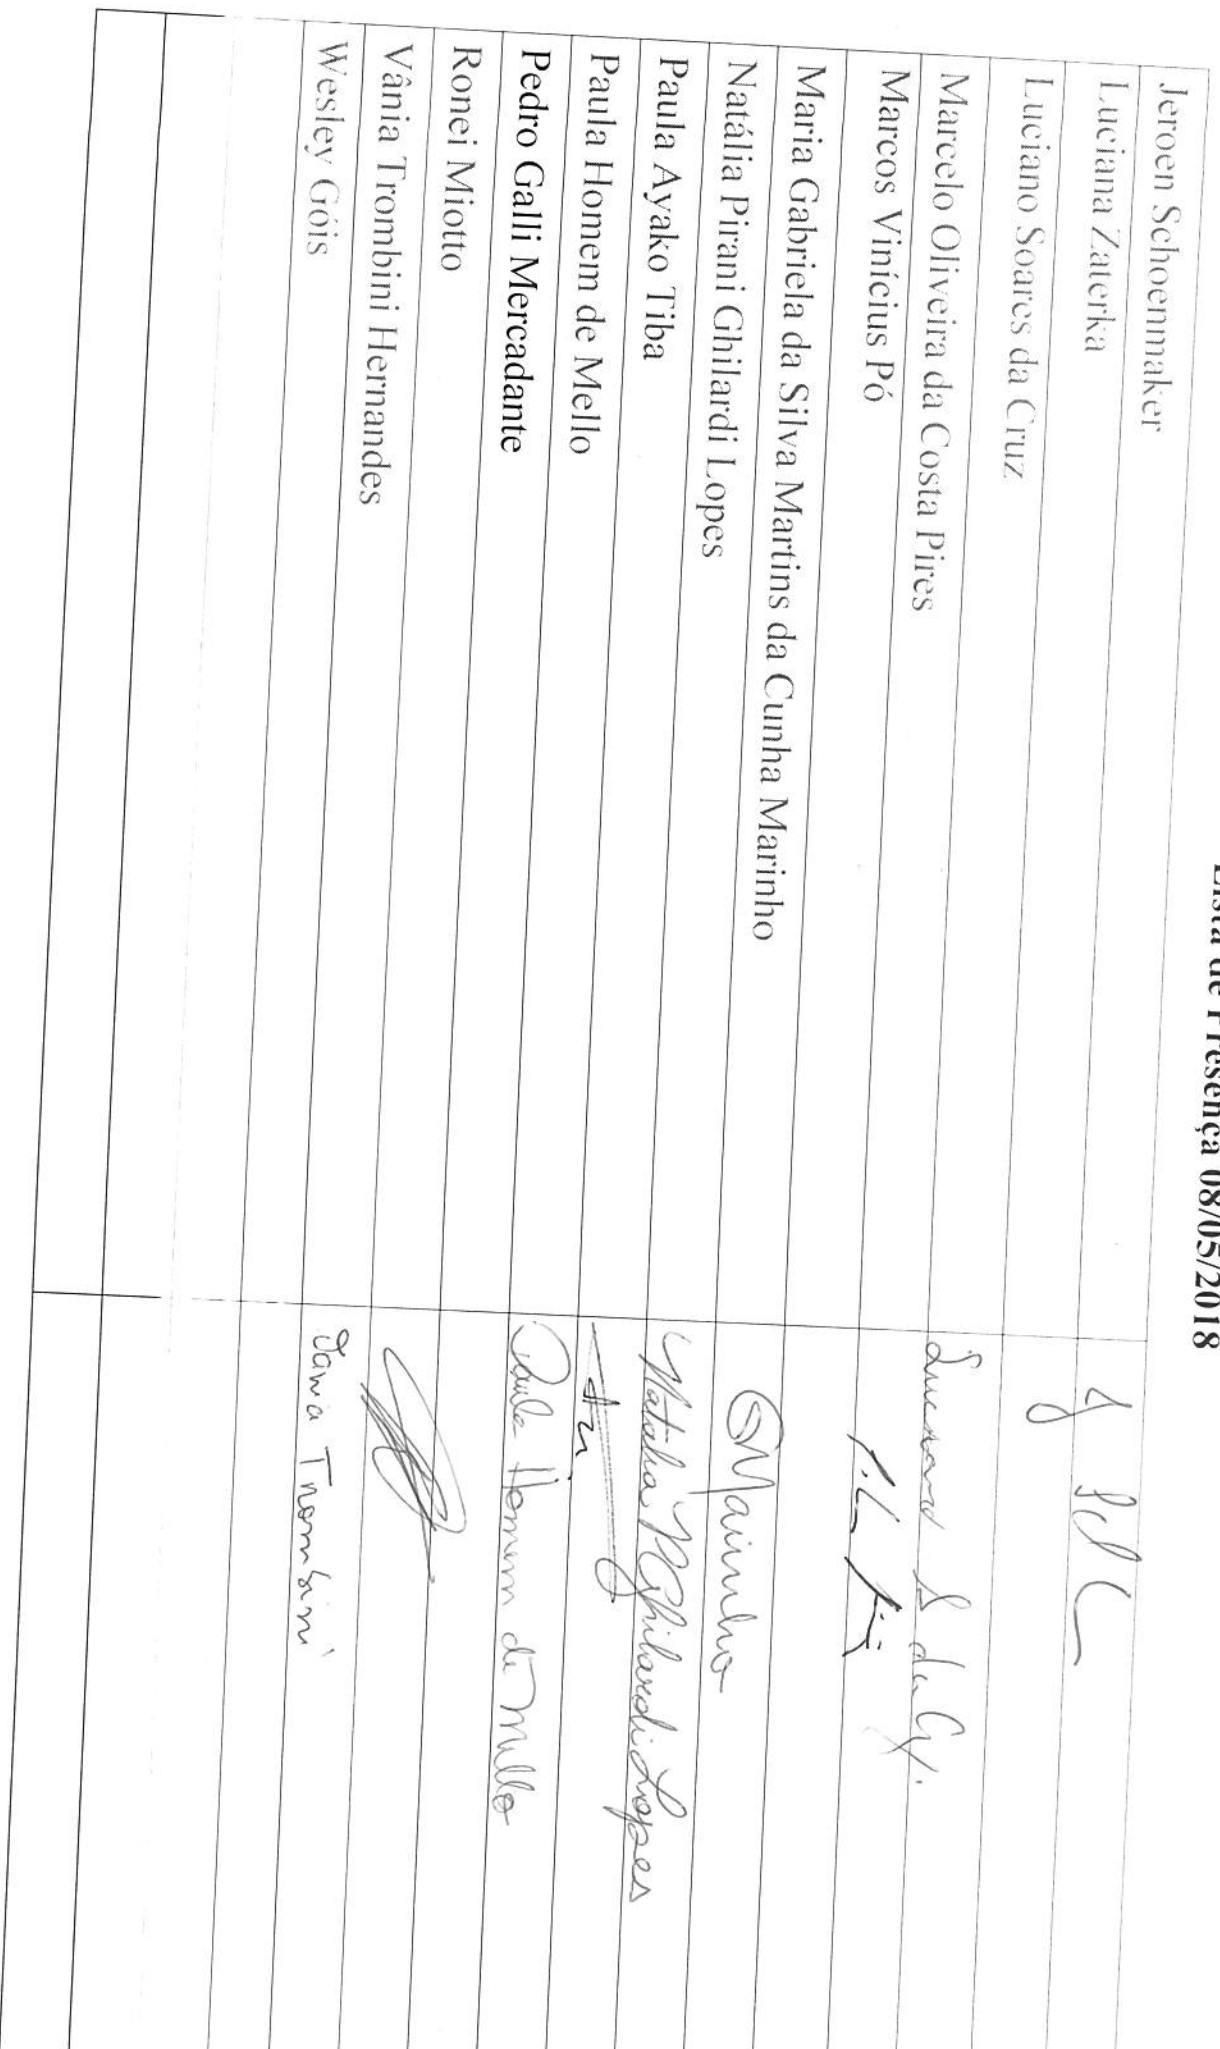 Lista de Presença 08/05/2018
Jeroen Schoenmaker
Luciana Zaterka
Luciano Soares da Cruz
Marcelo Oliveira da Costa Pires
Marcos Vinícius Pó
Maria Gabriela da Silva Martins da Cunha Marinho
Marinho
Natália Pirani Ghilardi Lopes
Natalia P Ghilardi Lopes
Paula Ayako Tiba
Paula Homem de Mello
Paula Homem de Mello
Pedro Galli Mercadante
Ronei Miotto
Vânia Trombini Hernandes
Vania Trombini
Wesley Góis